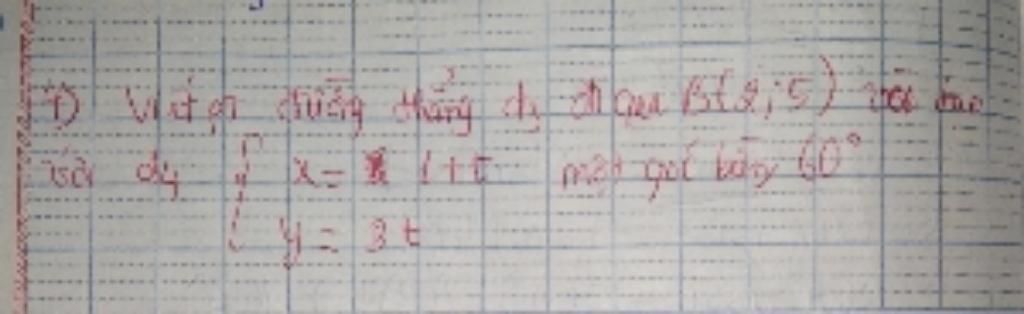 1) Viết pt đường thẳng d3 đi qua B(2;5) và tạo
với d4 { x = 1+t một góc bằng 60°
y = 3t